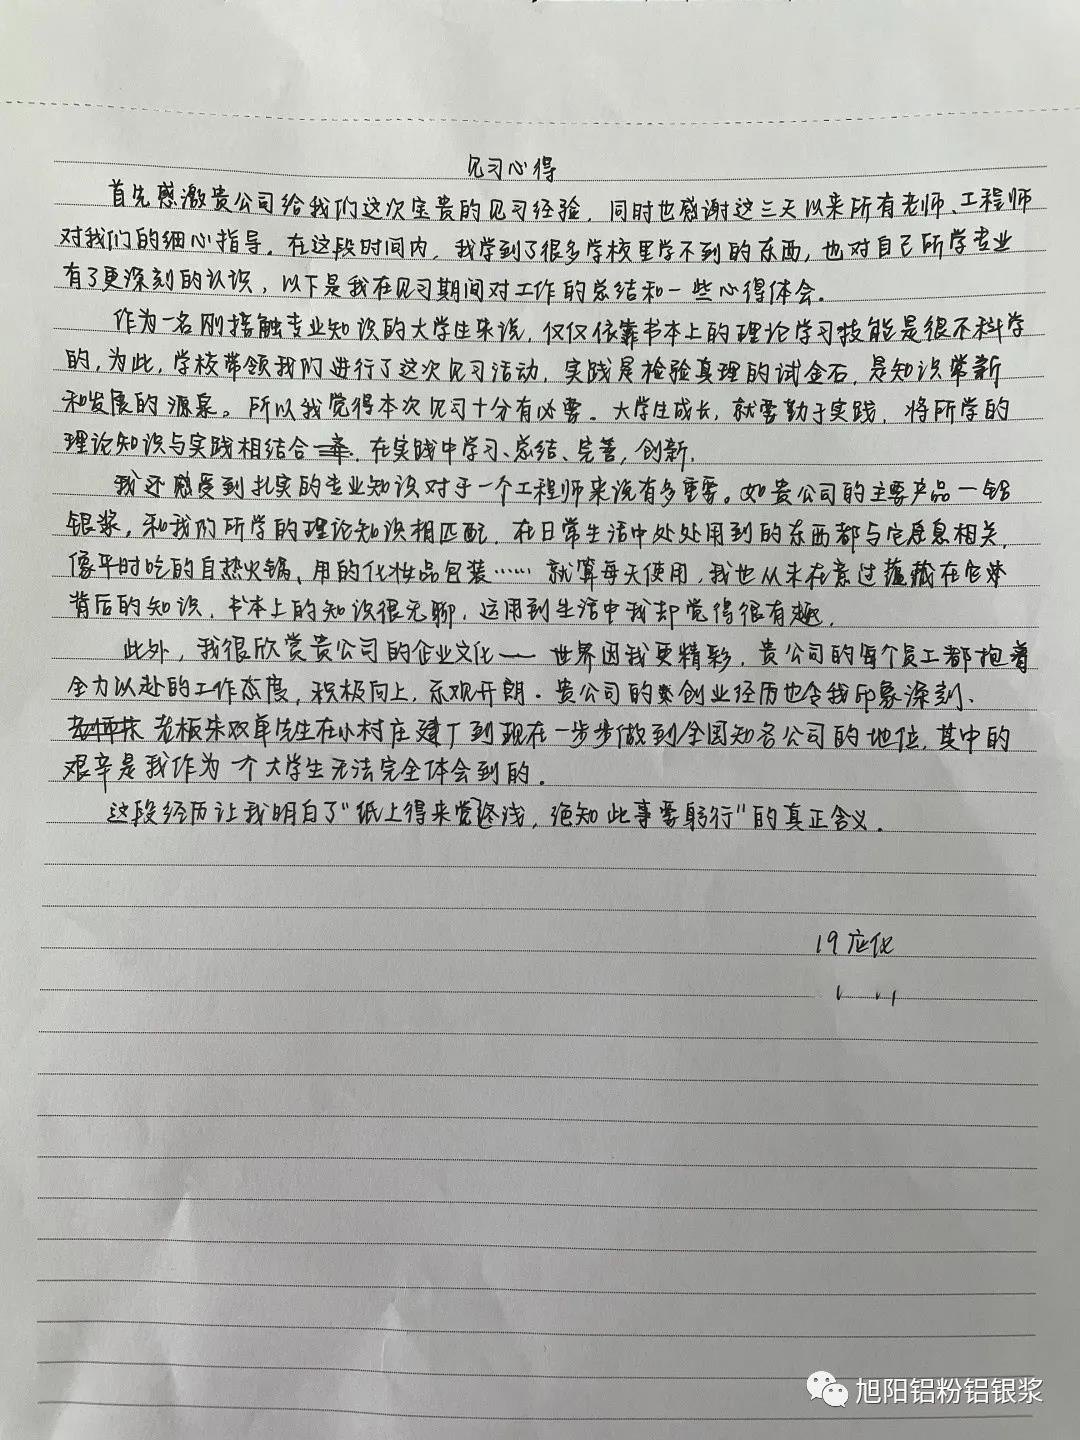 见习心得
首先感激贵公司给我们这次宝贵的见习经验，同时也感谢这三天以来所有老师、工程师
对我们的细心指导。在这段时间内，我学到了很多学校里学不到的东西，也对自己所学专业
有了更深刻的认识，以下是我在见习期间对工作的总结和一些心得体会。
作为一名刚接触专业知识的大学生来说，仅仅依靠书本上的理论学习技能是很不科学
的，为此，学校带领我们进行了这次见习活动，实践是检验真理的试金石，是知识常新
和发展的源泉。所以我觉得本次见习十分有必要。大学生成长，就要勤于实践，将所学的
理论知识与实践相结合，在实践中学习、总结、完善，创新.
我还感受到扎实的专业知识对于一个工程师来说有多重要。如贵公司的主要产品—铝
银浆，和我们所学的理论知识相匹配，在日常生活中处处用到的东西都与它息息相关，
像平时吃的自热火锅、用的化妆品包装……就算每天使用，我也从未在意过蕴藏在它
背后的知识，书本上的知识很无聊，运用到生活中我却觉得很有趣.
此外，我很欣赏贵公司的企业文化——世界因我更精彩，贵公司的每个员工都抱着
全力以赴的工作态度，积极向上，乐观开朗.贵公司的创业经历也令我印象深刻、
老板朱双单先生在小村庄建厂到现在一步步做到全国知名公司的地位，其中的
艰辛是我作为一个大学生无法完全体会到的.
这段经历让我明白了“纸上得来觉终浅，绝知此事要躬行”的真正含义.
19应化
旭阳铝粉铝银浆